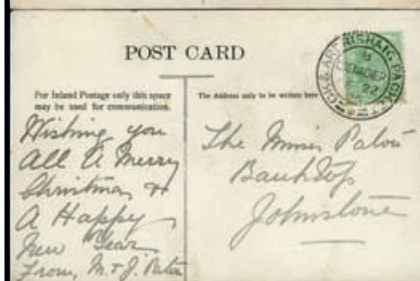 POST CARD
For Inland Postage only this space
may be used for communication.
The Address only to be written here
Wishing you
All A Merry
Christmas &
A Happy
New Year
From, M & J.
The Misses
Johnstone
& ARDRISHAIG PACK
22